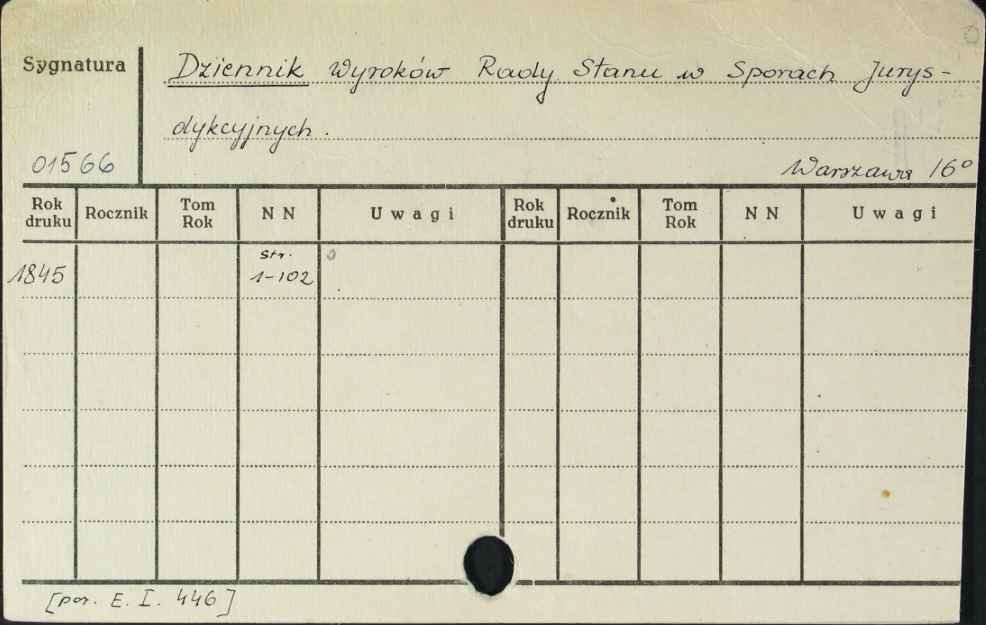 Sygnatura
Dziennik Wyroków Rady Stanu w Sporach Jurys-
dykcyjnych.
01566
Warszawa 16°
Rok druku Rocznik Tom Rok N N Uwagi Rok druku Rocznik Tom Rok N N Uwagi
1845 str. 1-102
[por. E. I. 446]